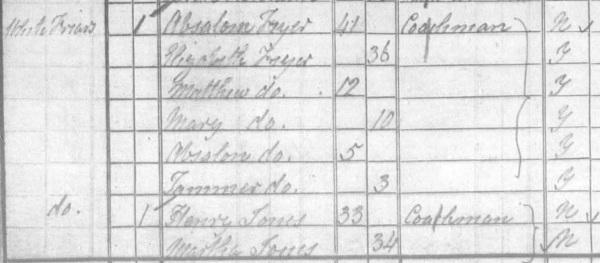 White Friars 1 Absalom Fryer 41 Coachman N
Elizabeth Fryer 36 Y
Matthew do. 12 Y
Mary do. 10 Y
Absalom do. 5 Y
Tammer do. 3 Y
do. 1 Henry Jones 33 Coachman N
Martha Jones 34 N